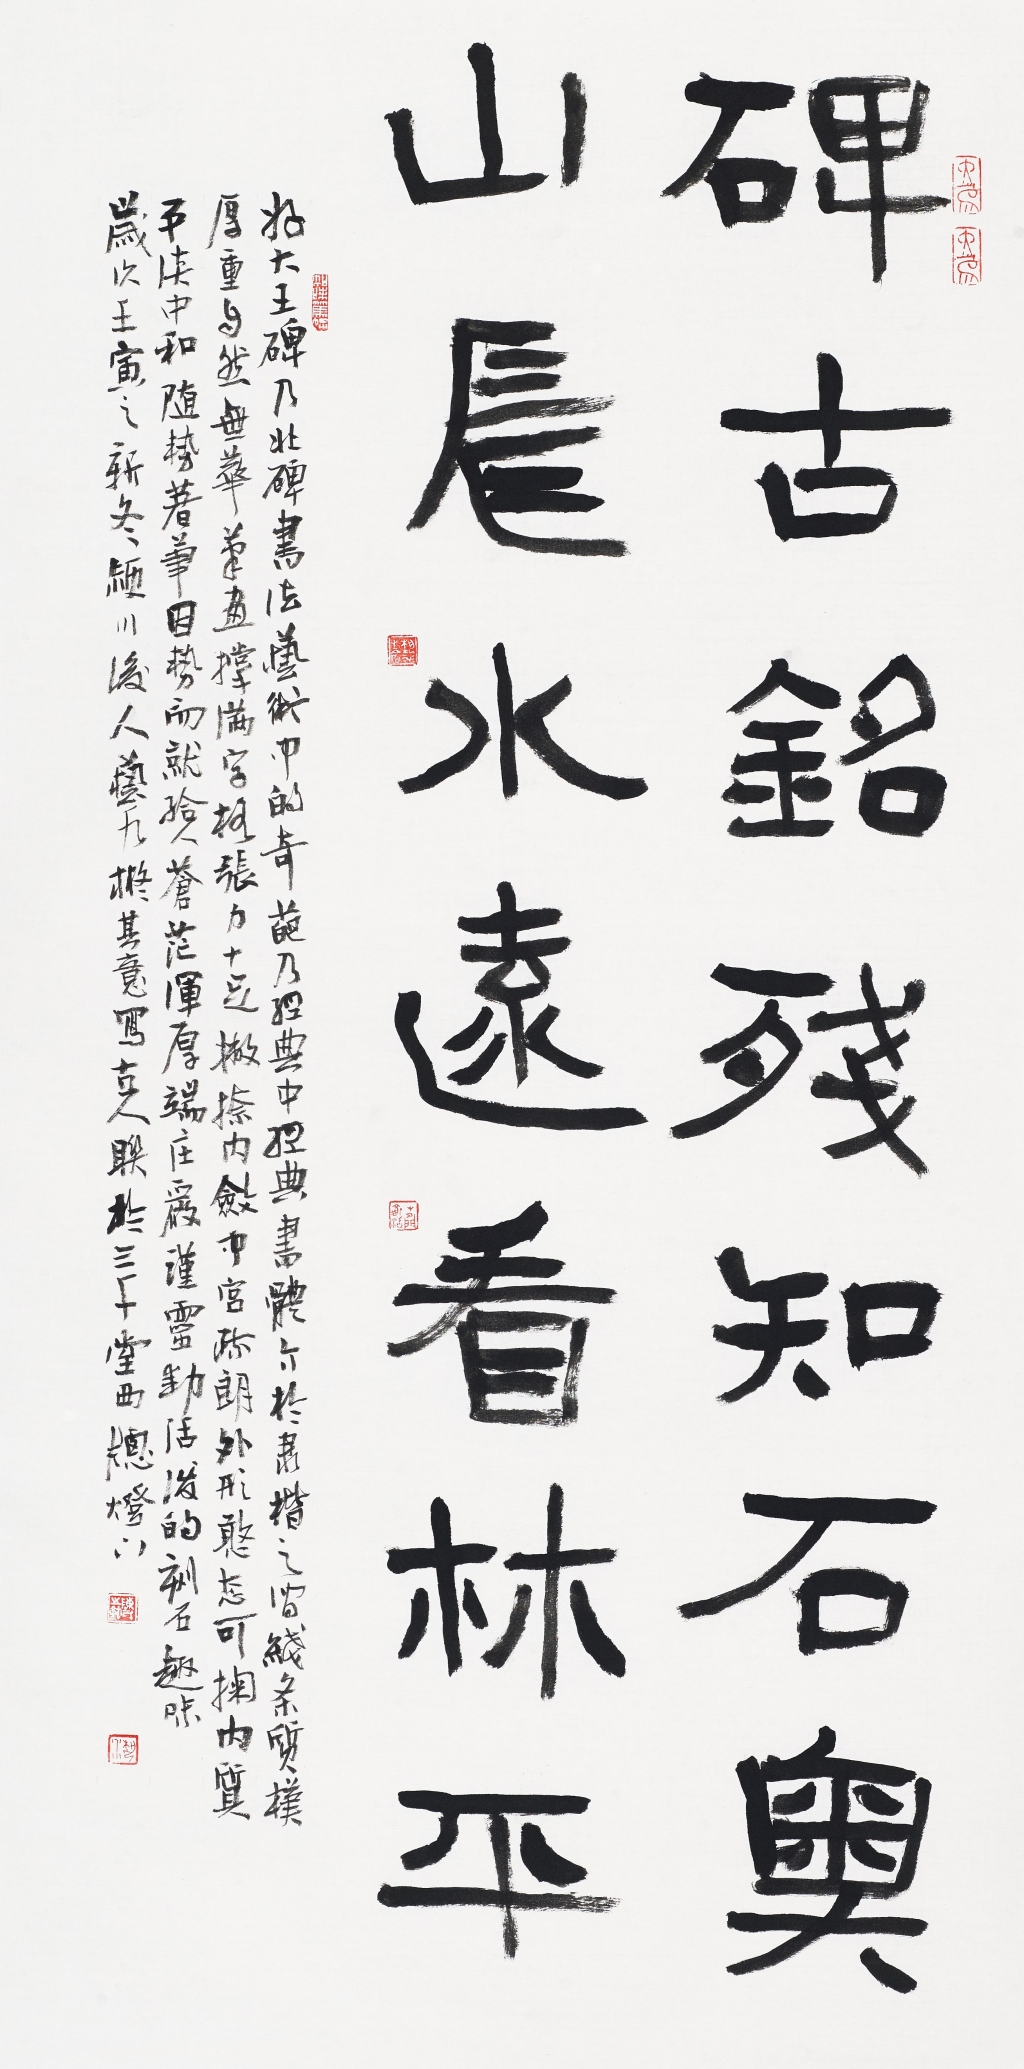 碑古銘殘知石奧
山長水遠看林平
好大王碑乃北碑書法藝術中的奇葩乃經典中經典書體介於隶楷之間綫条質樸
厚重自然無華筆画撑满字格張力十足撇捺内斂中宫疏朗外形憨态可掬内質
平淡中和随势著筆因势而就给人蒼茫渾厚端庄嚴谨靈動活潑的刻石趣味
歲次壬寅之新冬潁川後人藝九擬其意寫古人聯於三千堂西牕燈下